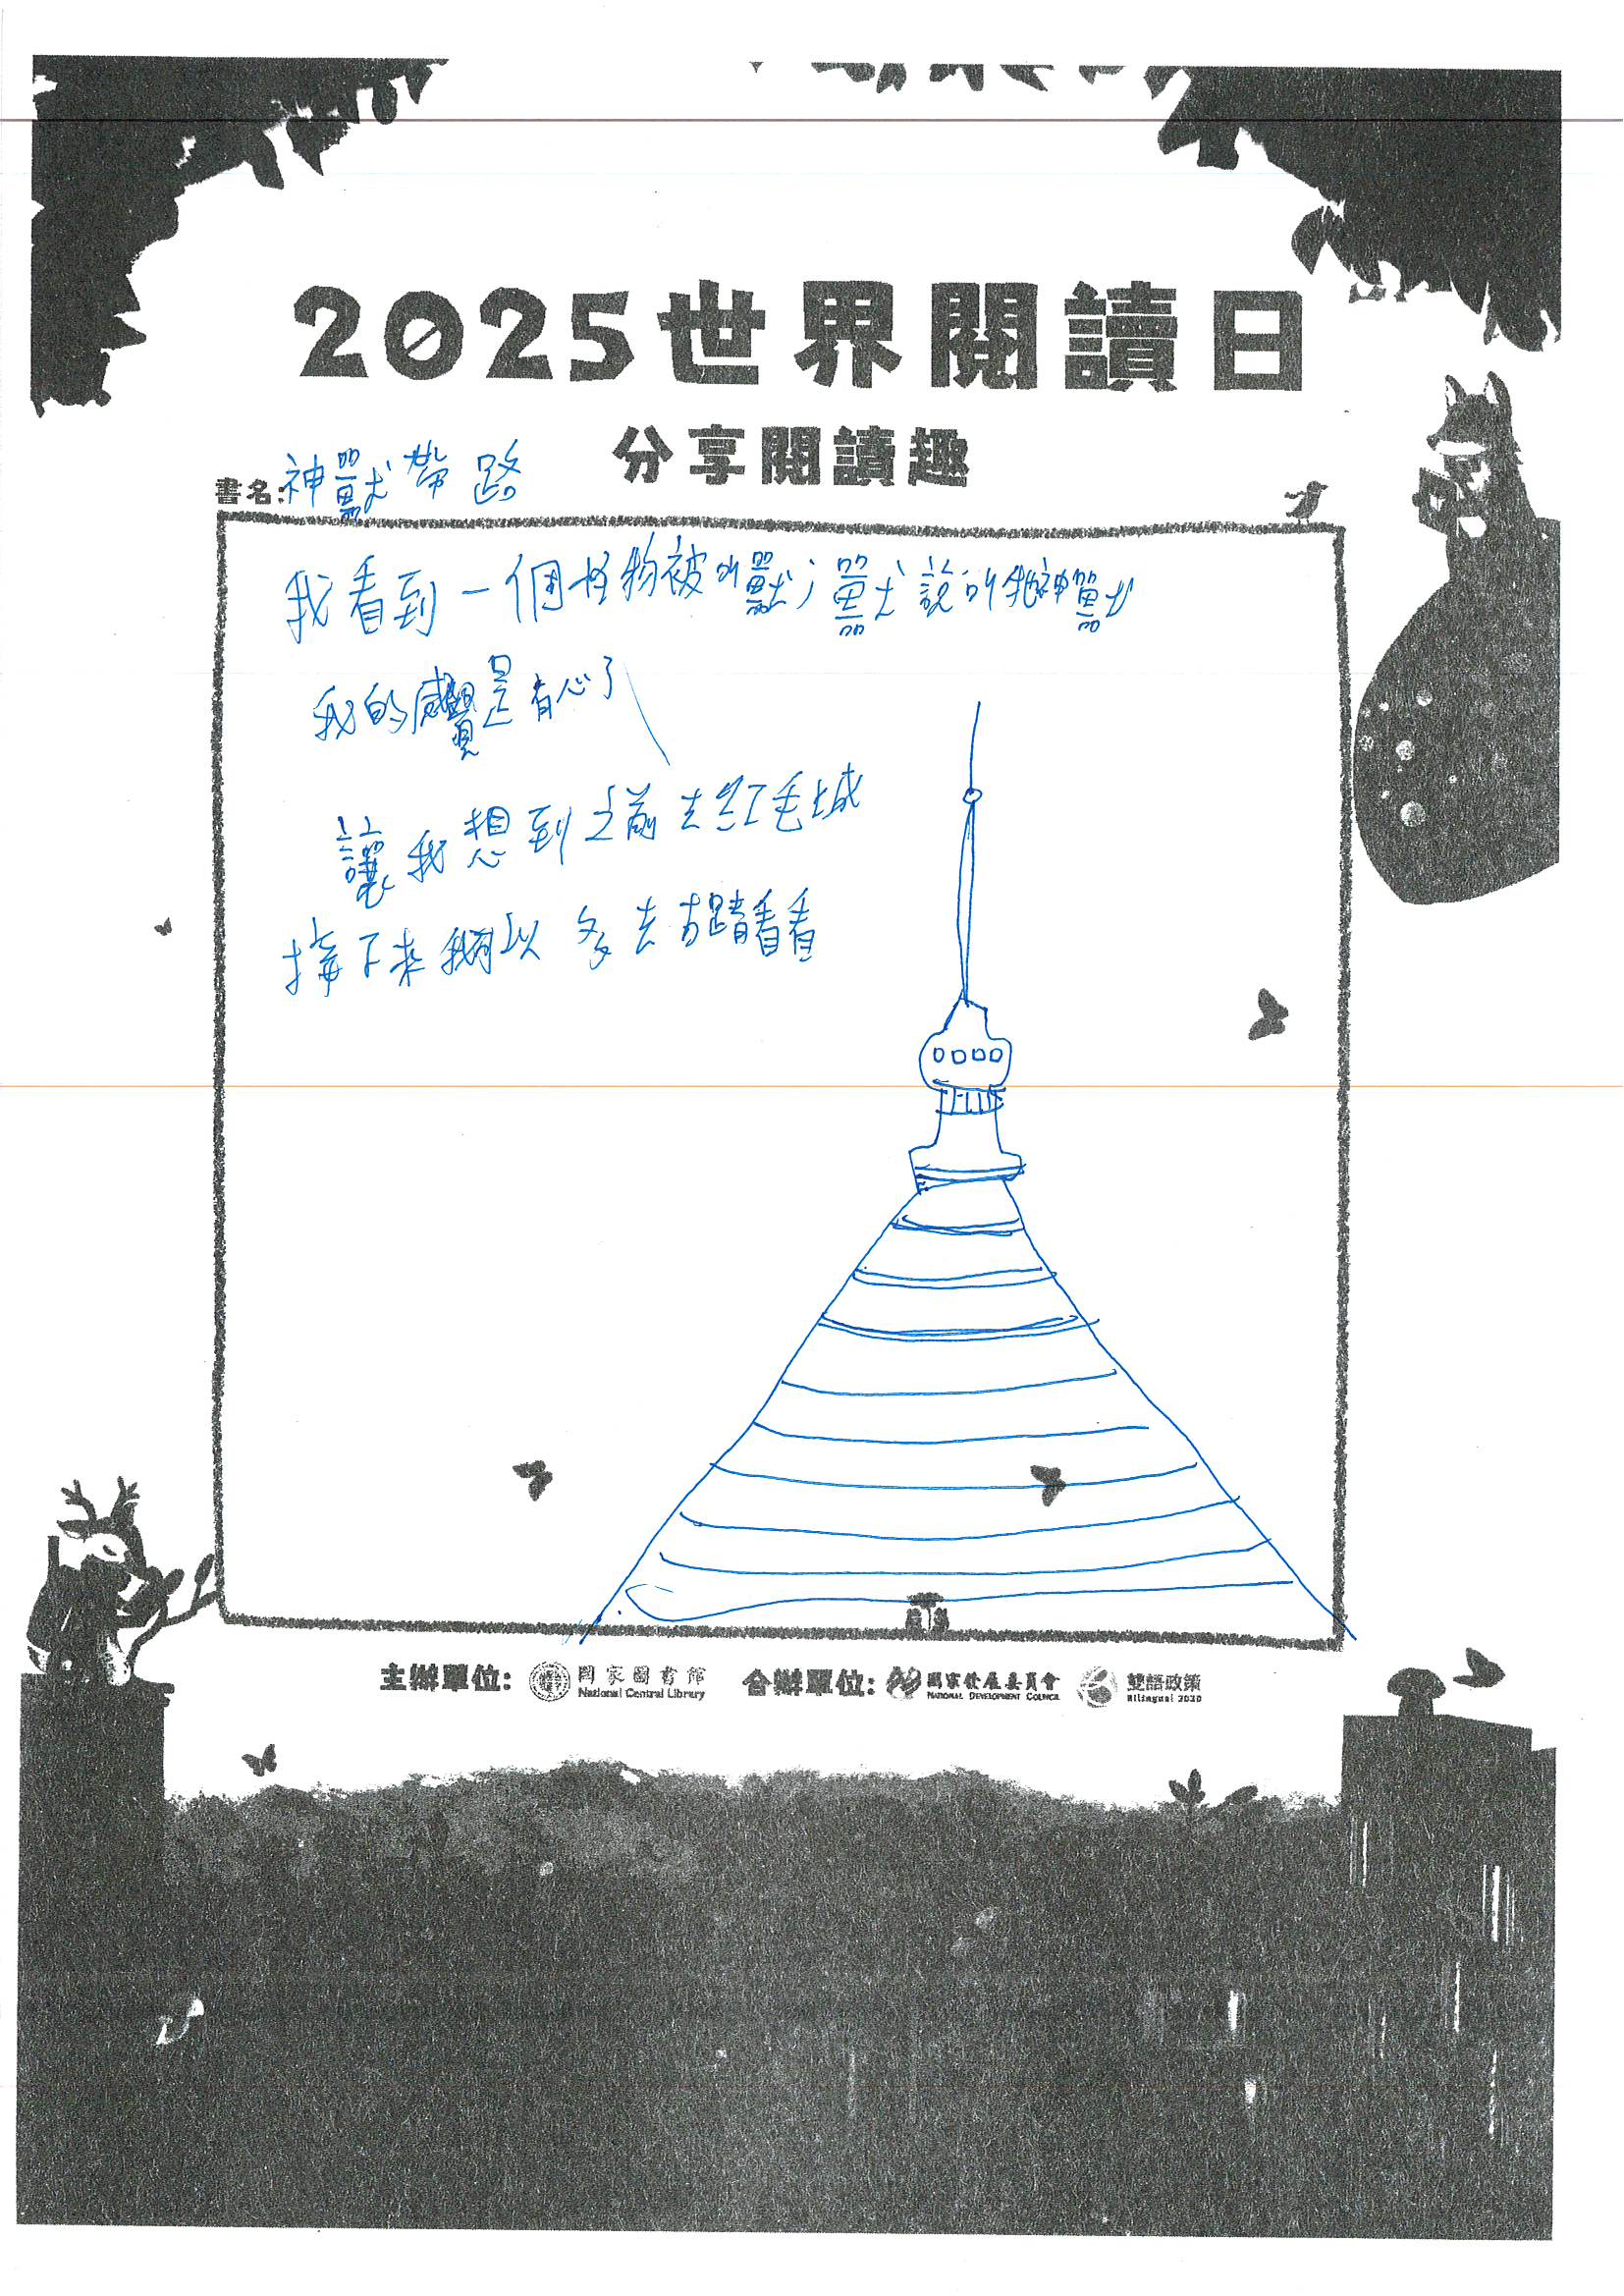 2025世界閱讀日
分享閱讀趣
書名:神獸帶路
我看到一個怪物被叫獸,獸說叫我神獸
我的感覺是有心了
讓我想到之前去紅毛城
接下來我可以多去古蹟看看
主辦單位: 國家圖書館 合辦單位: 國家發展委員會 雙語政策
National Central Library NATIONAL DEVELOPMENT COUNCIL Bilingual 2030